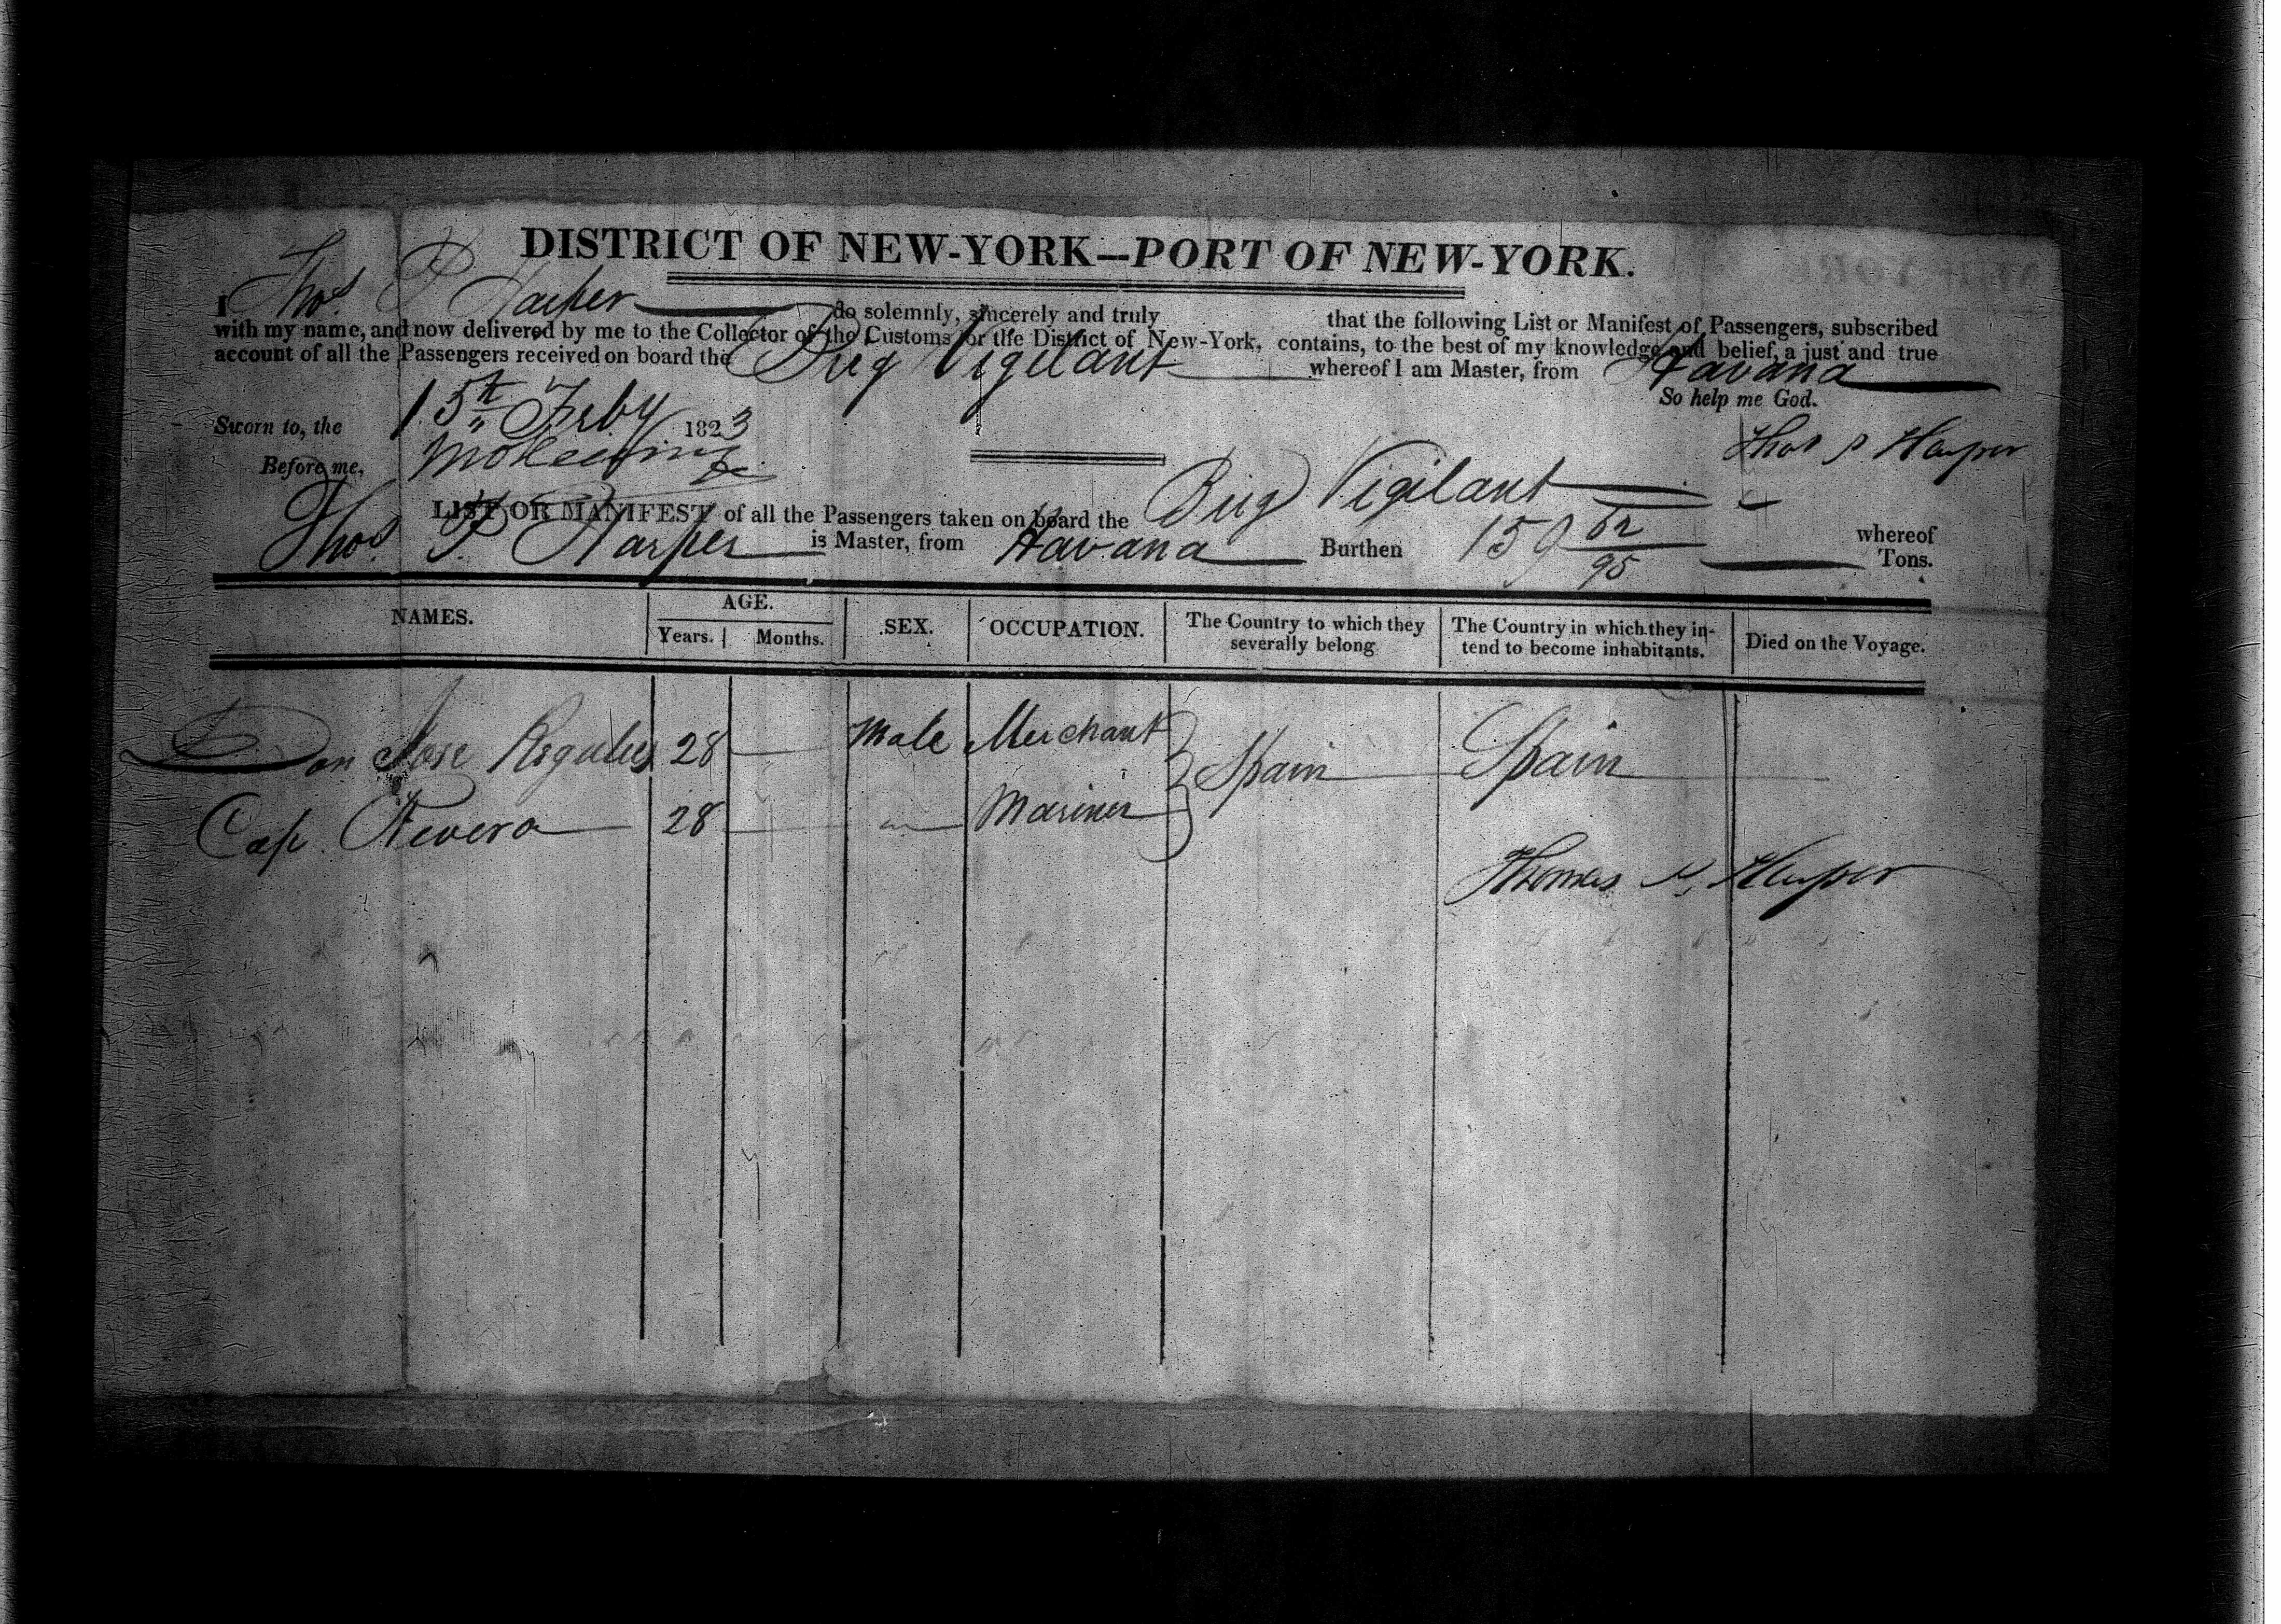 DISTRICT OF NEW-YORK—PORT OF NEW-YORK.
I Thos. P. Harper do solemnly, sincerely and truly that the following List or Manifest of Passengers, subscribed
with my name, and now delivered by me to the Collector of the Customs for the District of New-York, contains, to the best of my knowledge and belief, a just and true
account of all the Passengers received on board the Brig Vigilant whereof I am Master, from Havana
So help me God.
Sworn to, the 15th Feby 1823
Thos P. Harper
Before me,
LIST OR MANIFEST of all the Passengers taken on board the Brig Vigilant whereof
Thos. P. Harper is Master, from Havana Burthen 159 62/95 Tons.
NAMES. AGE. SEX. OCCUPATION. The Country to which they severally belong The Country in which they in-tend to become inhabitants. Died on the Voyage.
Years. Months.
Don Jose 28 Male Merchant Spain Spain
Cap. 28 " Mariner
Thomas P. Harper